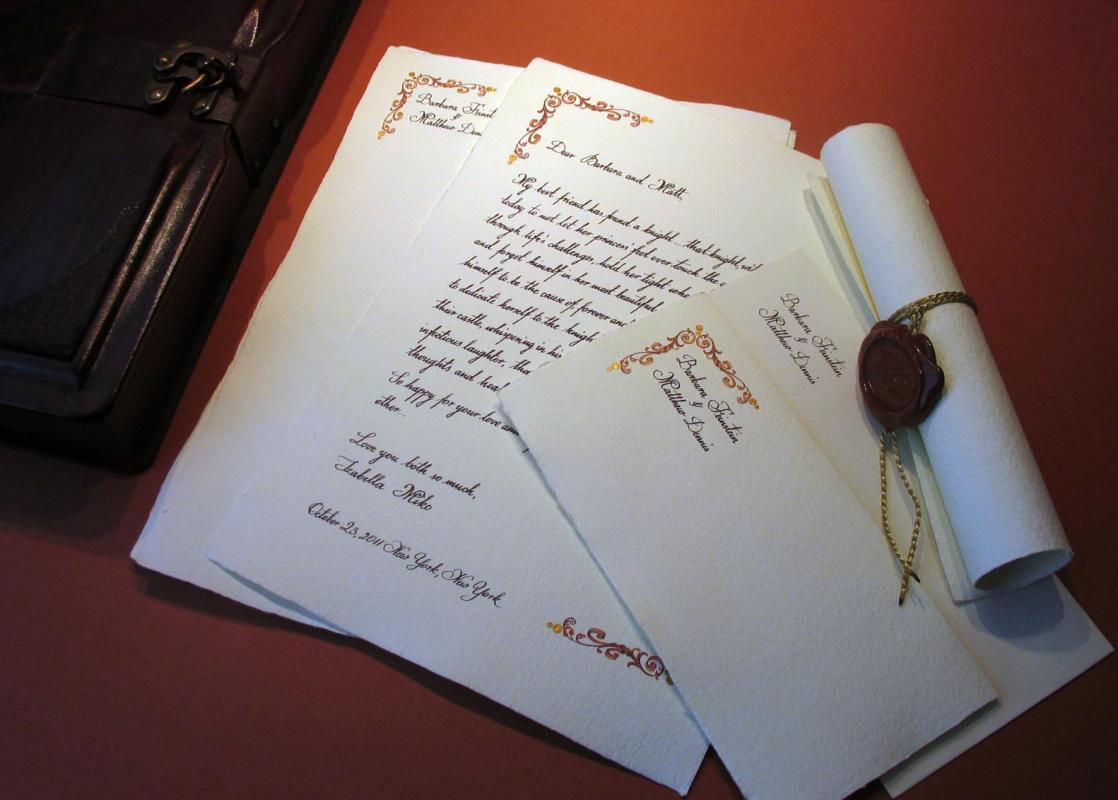 Barbara Finst
&
Matthew Den
Dear Barbara and Matt,
My best friend has found a knight... that knight,
today to not let her princess' feet ever touch the
through life's challenges, hold her tight
and forget himself in her most beautiful
himself to be the cause of forever and
to dedicate herself to the knigh
their castle, whispering in his
infectious laughter,
thoughts and heal
So happy for your love and
other...
Love you both so much,
Izabella Miko
October 23, 2011 New York, New York
Barbara Finstein
&
Matthew Dennis
Barbara Finstein
&
Matthew Dennis